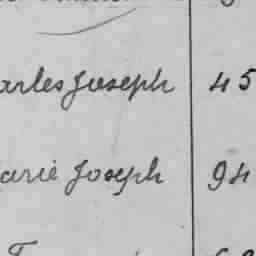 arles Joseph 45
arie Joseph 94